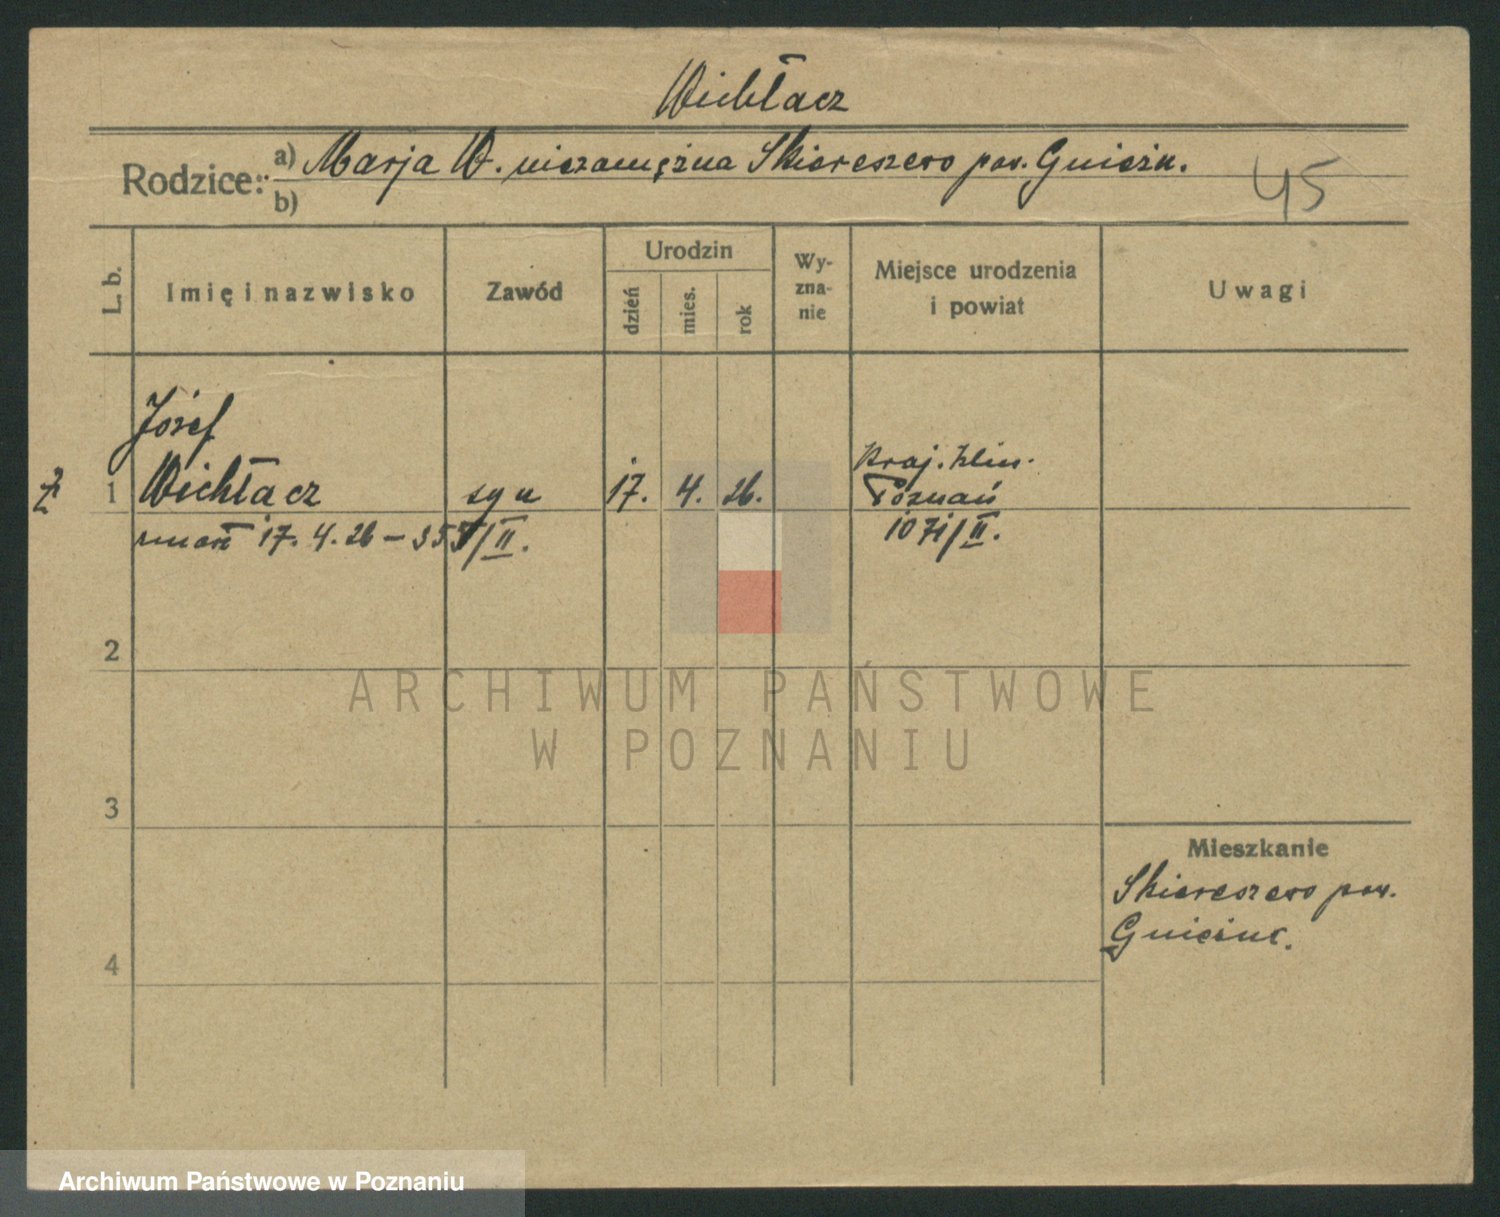 Wichłacz
Rodzice: a) Marja W. niezamężna Skiereszewo pow. Gnieźn.
b)
45
L. b.
Imię i nazwisko
Zawód
Urodzin
dzień
mies.
rok
Wy-
zna-
nie
Miejsce urodzenia
i powiat
Uwagi
Józef
1 Wichłacz syn 17. 4. 26. Kraj. klin.
Poznań
zmarł 17. 4. 26 – 355/II. 1071/II.
2
3
4
Mieszkanie
Skiereszewo pow.
Gniezno.
ARCHIWUM PAŃSTWOWE
W POZNANIU
Archiwum Państwowe w Poznaniu